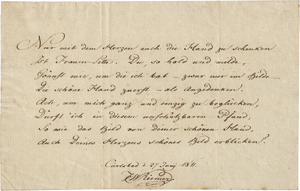 Nur mit dem Herzen auch die Hand zu schenken
Ist Frauen-Sitte. Du, so hold und milde,
Gönnst mir, um die ich bat – zwar nur im Bilde –
Die schöne Hand zuerst – als Angedenken!
Ach, um mich ganz und einzig zu beglücken,
Dürft ich in diesem unschätzbaren Pfand,
So wie das Bild von deiner schönen Hand,
Auch Deines Herzens schönes Bild erblicken?
Carlsbad d. 27 Juny 1811.
Riemer